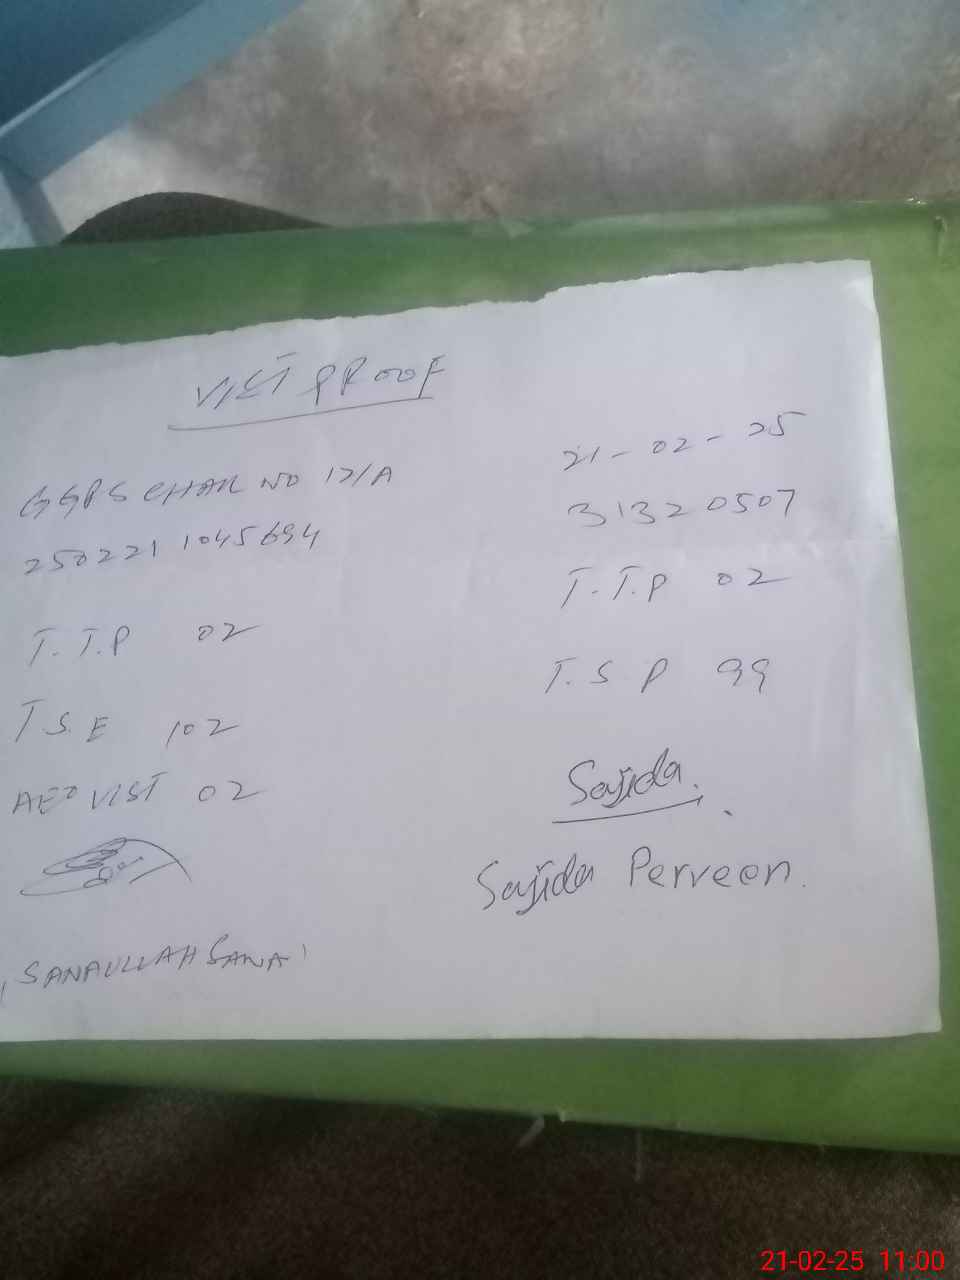 VIST PROOF
GGPS CHAK NO 121/A
21-02-25
2502211045694
31320507
T.T.P 02
T.T.P 02
T.S.E 102
T.S.P 99
AEO VIST 02
Sajida.
Sajida Perveen.
SANAULLAH SANA
21-02-25 11:00